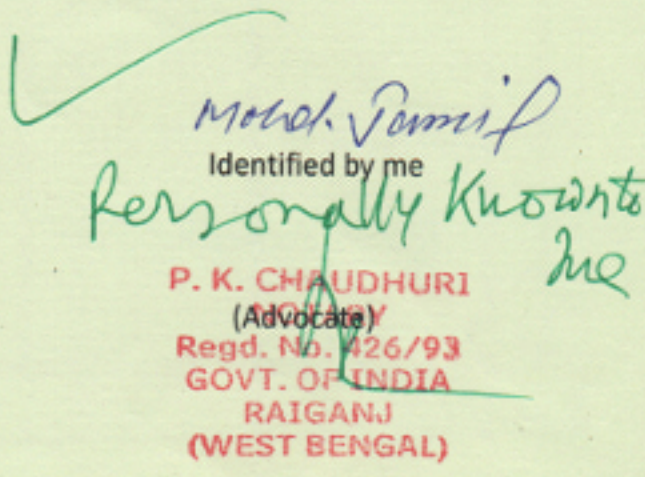 Mohd. Jamil
Identified by me
Personally Known to
me
P. K. CHAUDHURI
NOTARY
(Advocate)
Regd. No. 426/93
GOVT. OF INDIA
RAIGANJ
(WEST BENGAL)